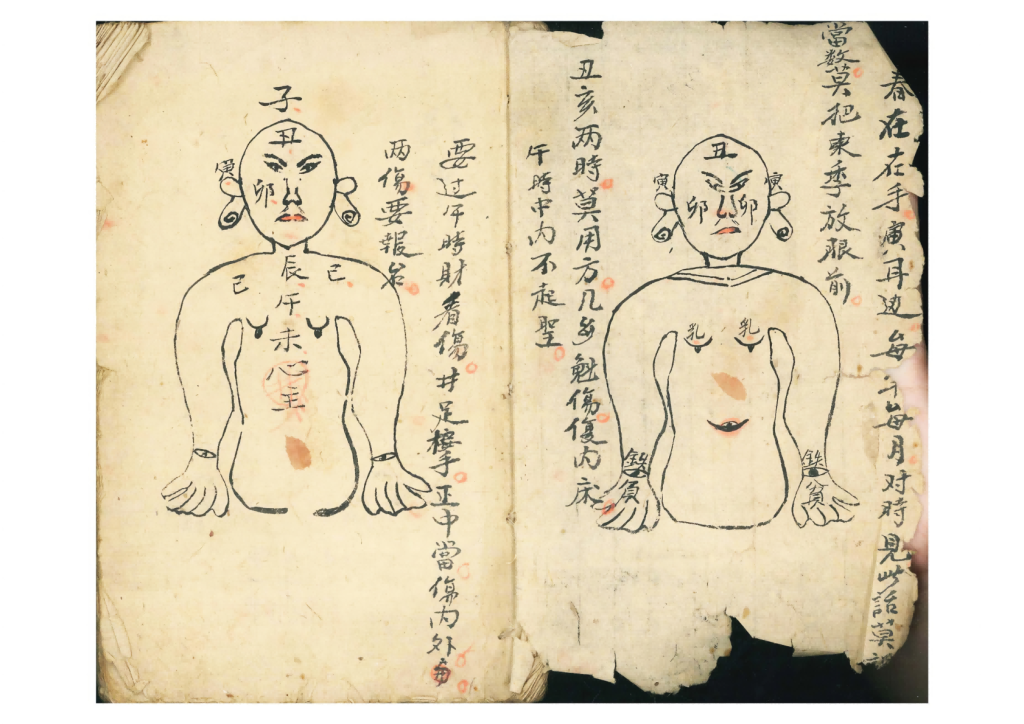 春在在手寅耳边每
每月对時見此話莫
當数莫把東季放眼前
丑
寅
寅
卯
卯
乳
乳
丑亥两時莫用方几
傷復内床
午時中内不起聖
要过午時財看傷井足
手正中當傷内外
两傷要報
子
丑
寅
卯
辰
已
已
午
未
心
主